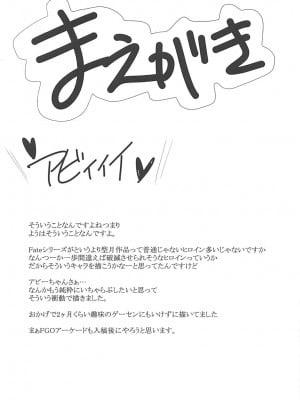 まえがき
アビィィィ
そういうことなんですよねつまり
ようはそういうことなんですよ。
Fateシリーズがというより型月作品って普通じゃないヒロイン多いじゃないですか
なんつーか一歩間違えば破滅させられそうなヒロインっていうか
だからそういうキャラを描こうかなーと思ってたんですけど
アビーちゃんさぁ…
なんかもう純粋にいちゃらぶしたいと思って
そういう衝動で描きました。
おかげで2ヶ月くらい趣味のゲーセンにもいけずに描いてました
まぁFGOアーケードも入稿後にやろうと思います。